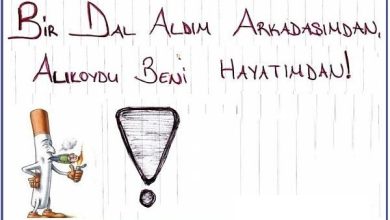 BİR DAL ALDIM ARKADAŞIMDAN,
ALIKOYDU BENİ HAYATIMDAN!